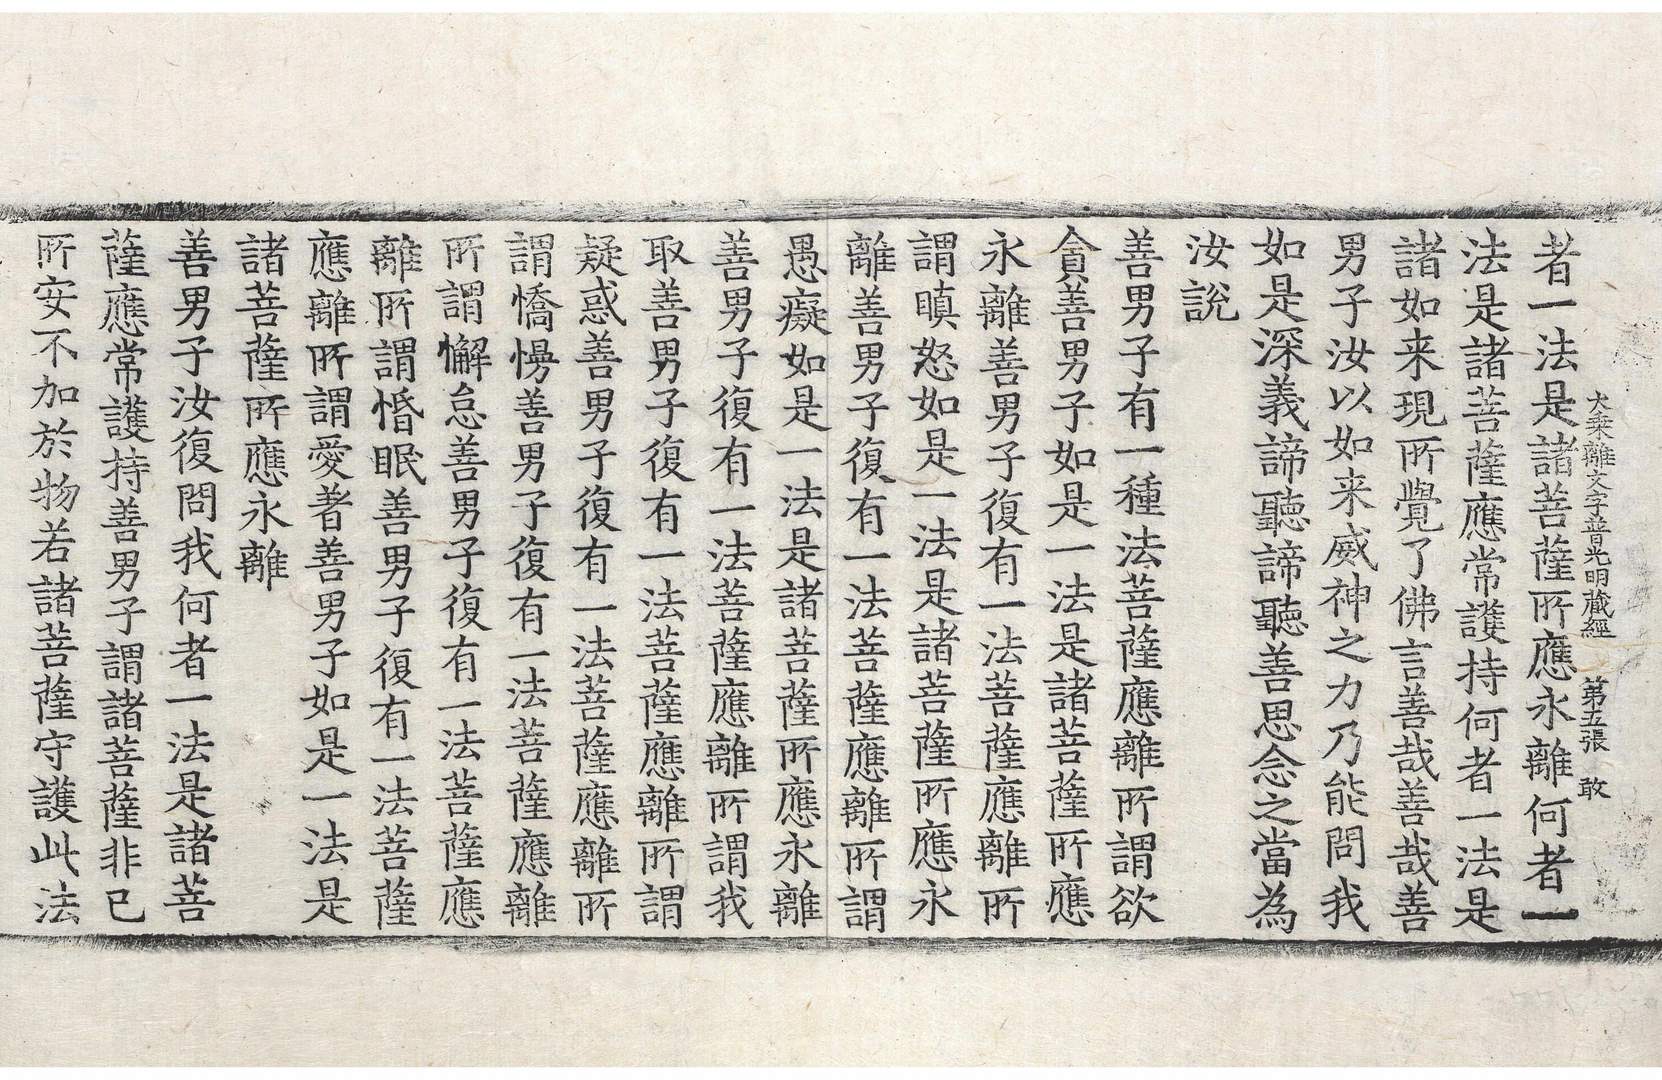 大乗離文字普光明藏經 第五張 敢
者一法是諸菩薩所應永離何者一
法是諸菩薩應常護持何者一法是
諸如来現所覺了佛言善哉善哉善
男子汝以如来威神之力乃能問我
如是深義諦聽諦聽善思念之當為
汝說
善男子有一種法菩薩應離所謂欲
貪善男子如是一法是諸菩薩所應
永離善男子復有一法菩薩應離所
謂瞋怒如是一法是諸菩薩所應永
離善男子復有一法菩薩應離所謂
愚癡如是一法是諸菩薩所應永離
善男子復有一法菩薩應離所謂我
取善男子復有一法菩薩應離所謂
疑惑善男子復有一法菩薩應離所
謂憍慢善男子復有一法菩薩應離
所謂懈怠善男子復有一法菩薩應
離所謂惛眠善男子復有一法菩薩
應離所謂愛著善男子如是一法是
諸菩薩所應永離
善男子汝復問我何者一法是諸菩
薩應常護持善男子謂諸菩薩非已
所安不加於物若諸菩薩守護此法